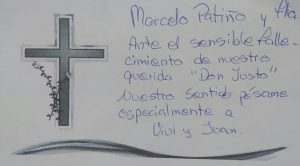 Marcelo Patiño y Flia
Ante el sensible falle-
cimiento de nuestro
querido "Don Justo"
Nuestro sentido pésame
especialmente a
Vivi y Juan.